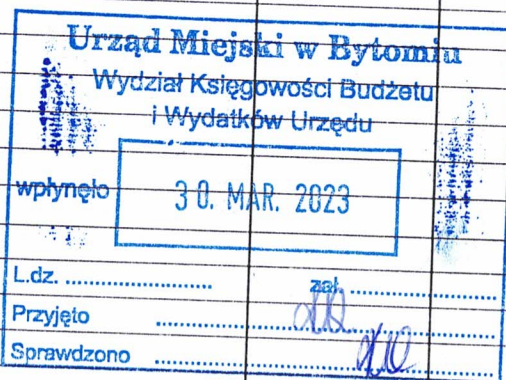 Urząd Miejski w Bytomiu
Wydział Księgowości Budżetu
i Wydatków Urzędu
wpłynęło 30. MAR. 2023
L.dz. .......................... zał. ..........................
Przyjęto ..........................
Sprawdzono ..........................